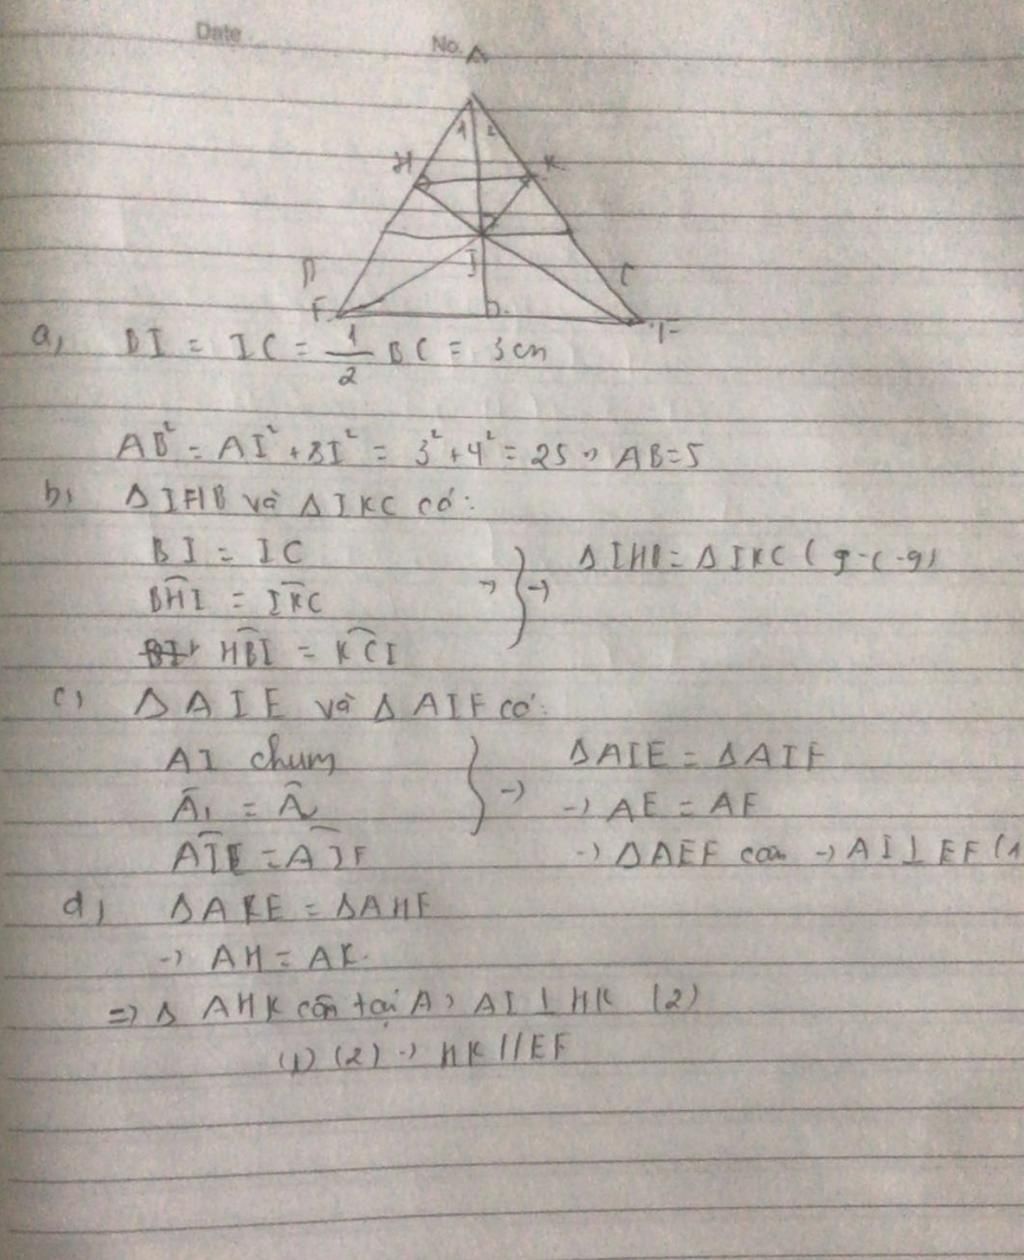 Date
No.
A
1 2
H K
I
F
a, BI = IC = 1/2 BC = 3cm
AB² = AI² + BI² = 3² + 4² = 25 → AB=5
b, Δ IHB và Δ IKC có:
BI = IC
BHI = IKC → } → Δ IHB = Δ IKC (g-c-g)
HBI = KCI
c, Δ AIE và Δ AIF có:
AI chum } → ΔAIE = ΔAIF
A₁ = A₂ → AE = AF
AIE = AIF → ΔAEF can → AI⊥EF (1
d, ΔAKE = ΔAHF
→ AH = AK.
=> Δ AHK cân tại A → AI ⊥ HK (2)
(1) (2) → HK // EF